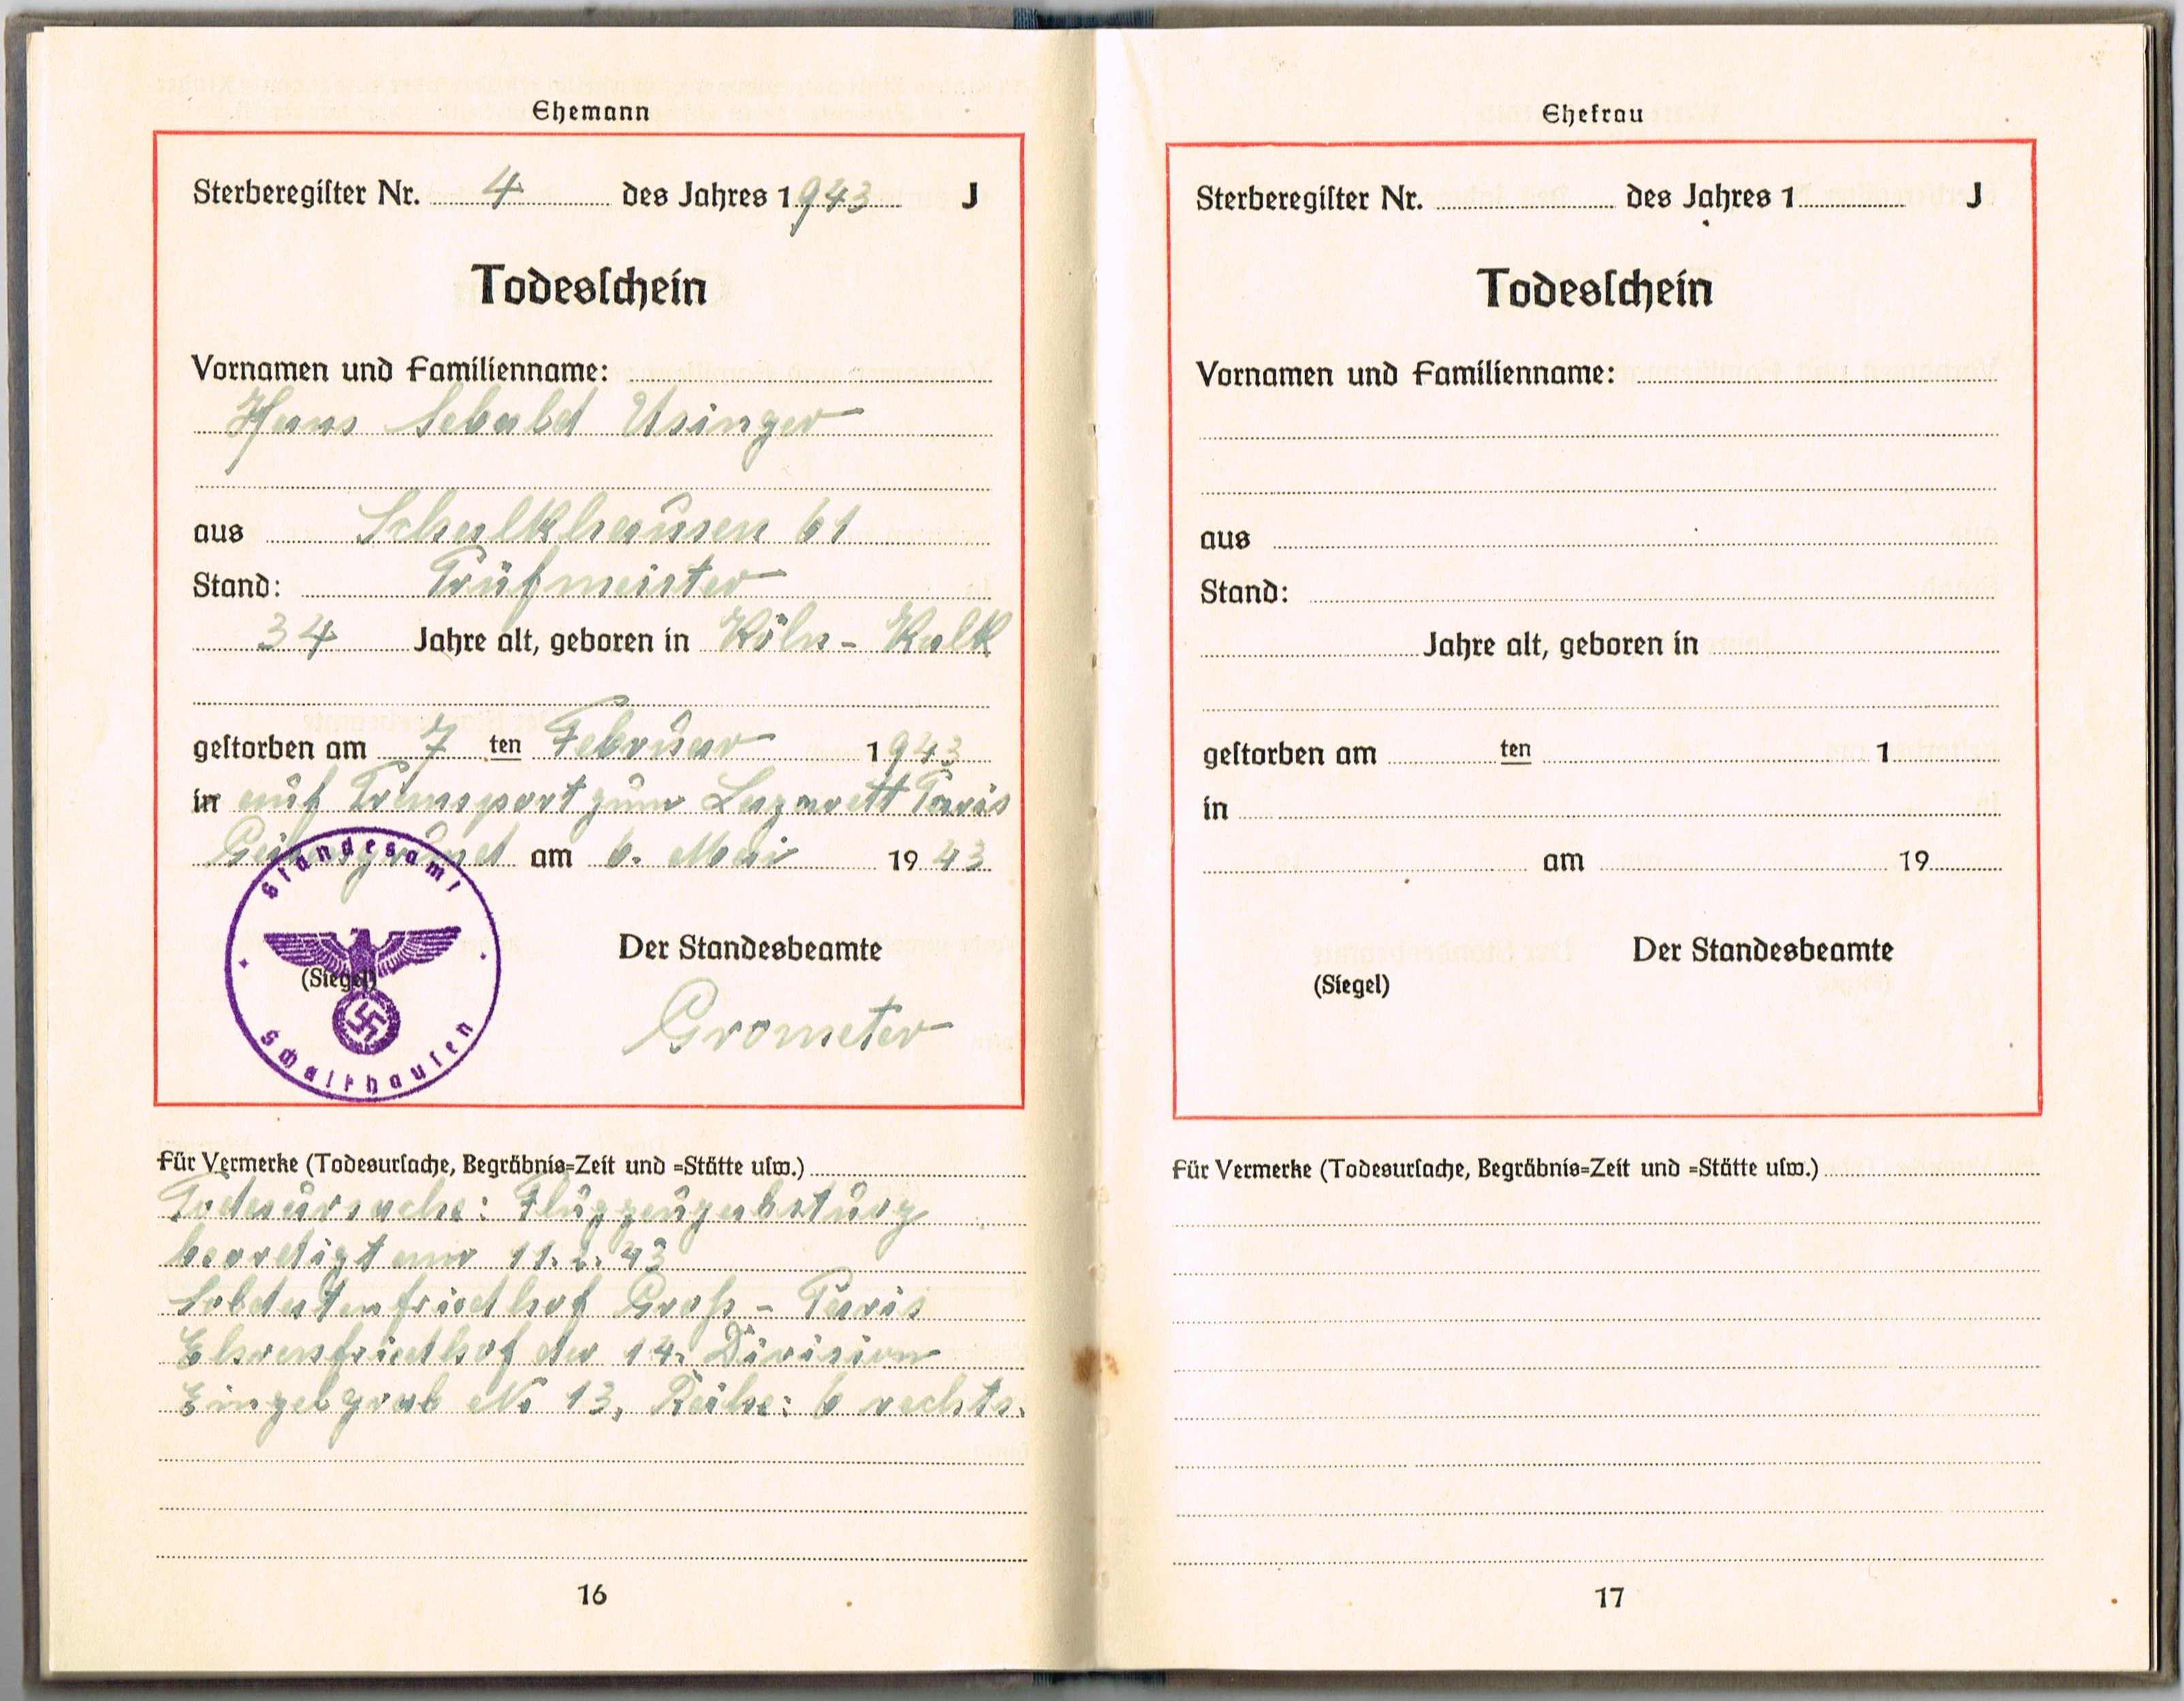 Ehemann
Sterberegiſter Nr. 4 des Jahres 1943 J
Todesſchein
Vornamen und Familienname:
Hans Sebald Usinger
aus Schalkhausen 61
Stand: Prüfmeister
34 Jahre alt, geboren in Köln - Kalk
geſtorben am 7 ten Februar 1943
in auf Transport zum Lazarett Paris
am 6. Mai 1943
Standesamt
(Siegel)
Schalkhauſen
Der Standesbeamte
Grometer
Für Vermerke (Todesurſache, Begräbnis=Zeit und =Stätte uſw.)
Todesursache: Flugzeugabsturz
beerdigt am 11.2.43
Soldatenfriedhof Groß - Paris
Ehrenfriedhof der 14. Division
Einzelgrab No 13, Reihe: 6 rechts.
16
Ehefrau
Sterberegiſter Nr. des Jahres 1 J
Todesſchein
Vornamen und Familienname:
aus
Stand:
Jahre alt, geboren in
geſtorben am ten 1
in
am 19
Der Standesbeamte
(Siegel)
Für Vermerke (Todesurſache, Begräbnis=Zeit und =Stätte uſw.)
17